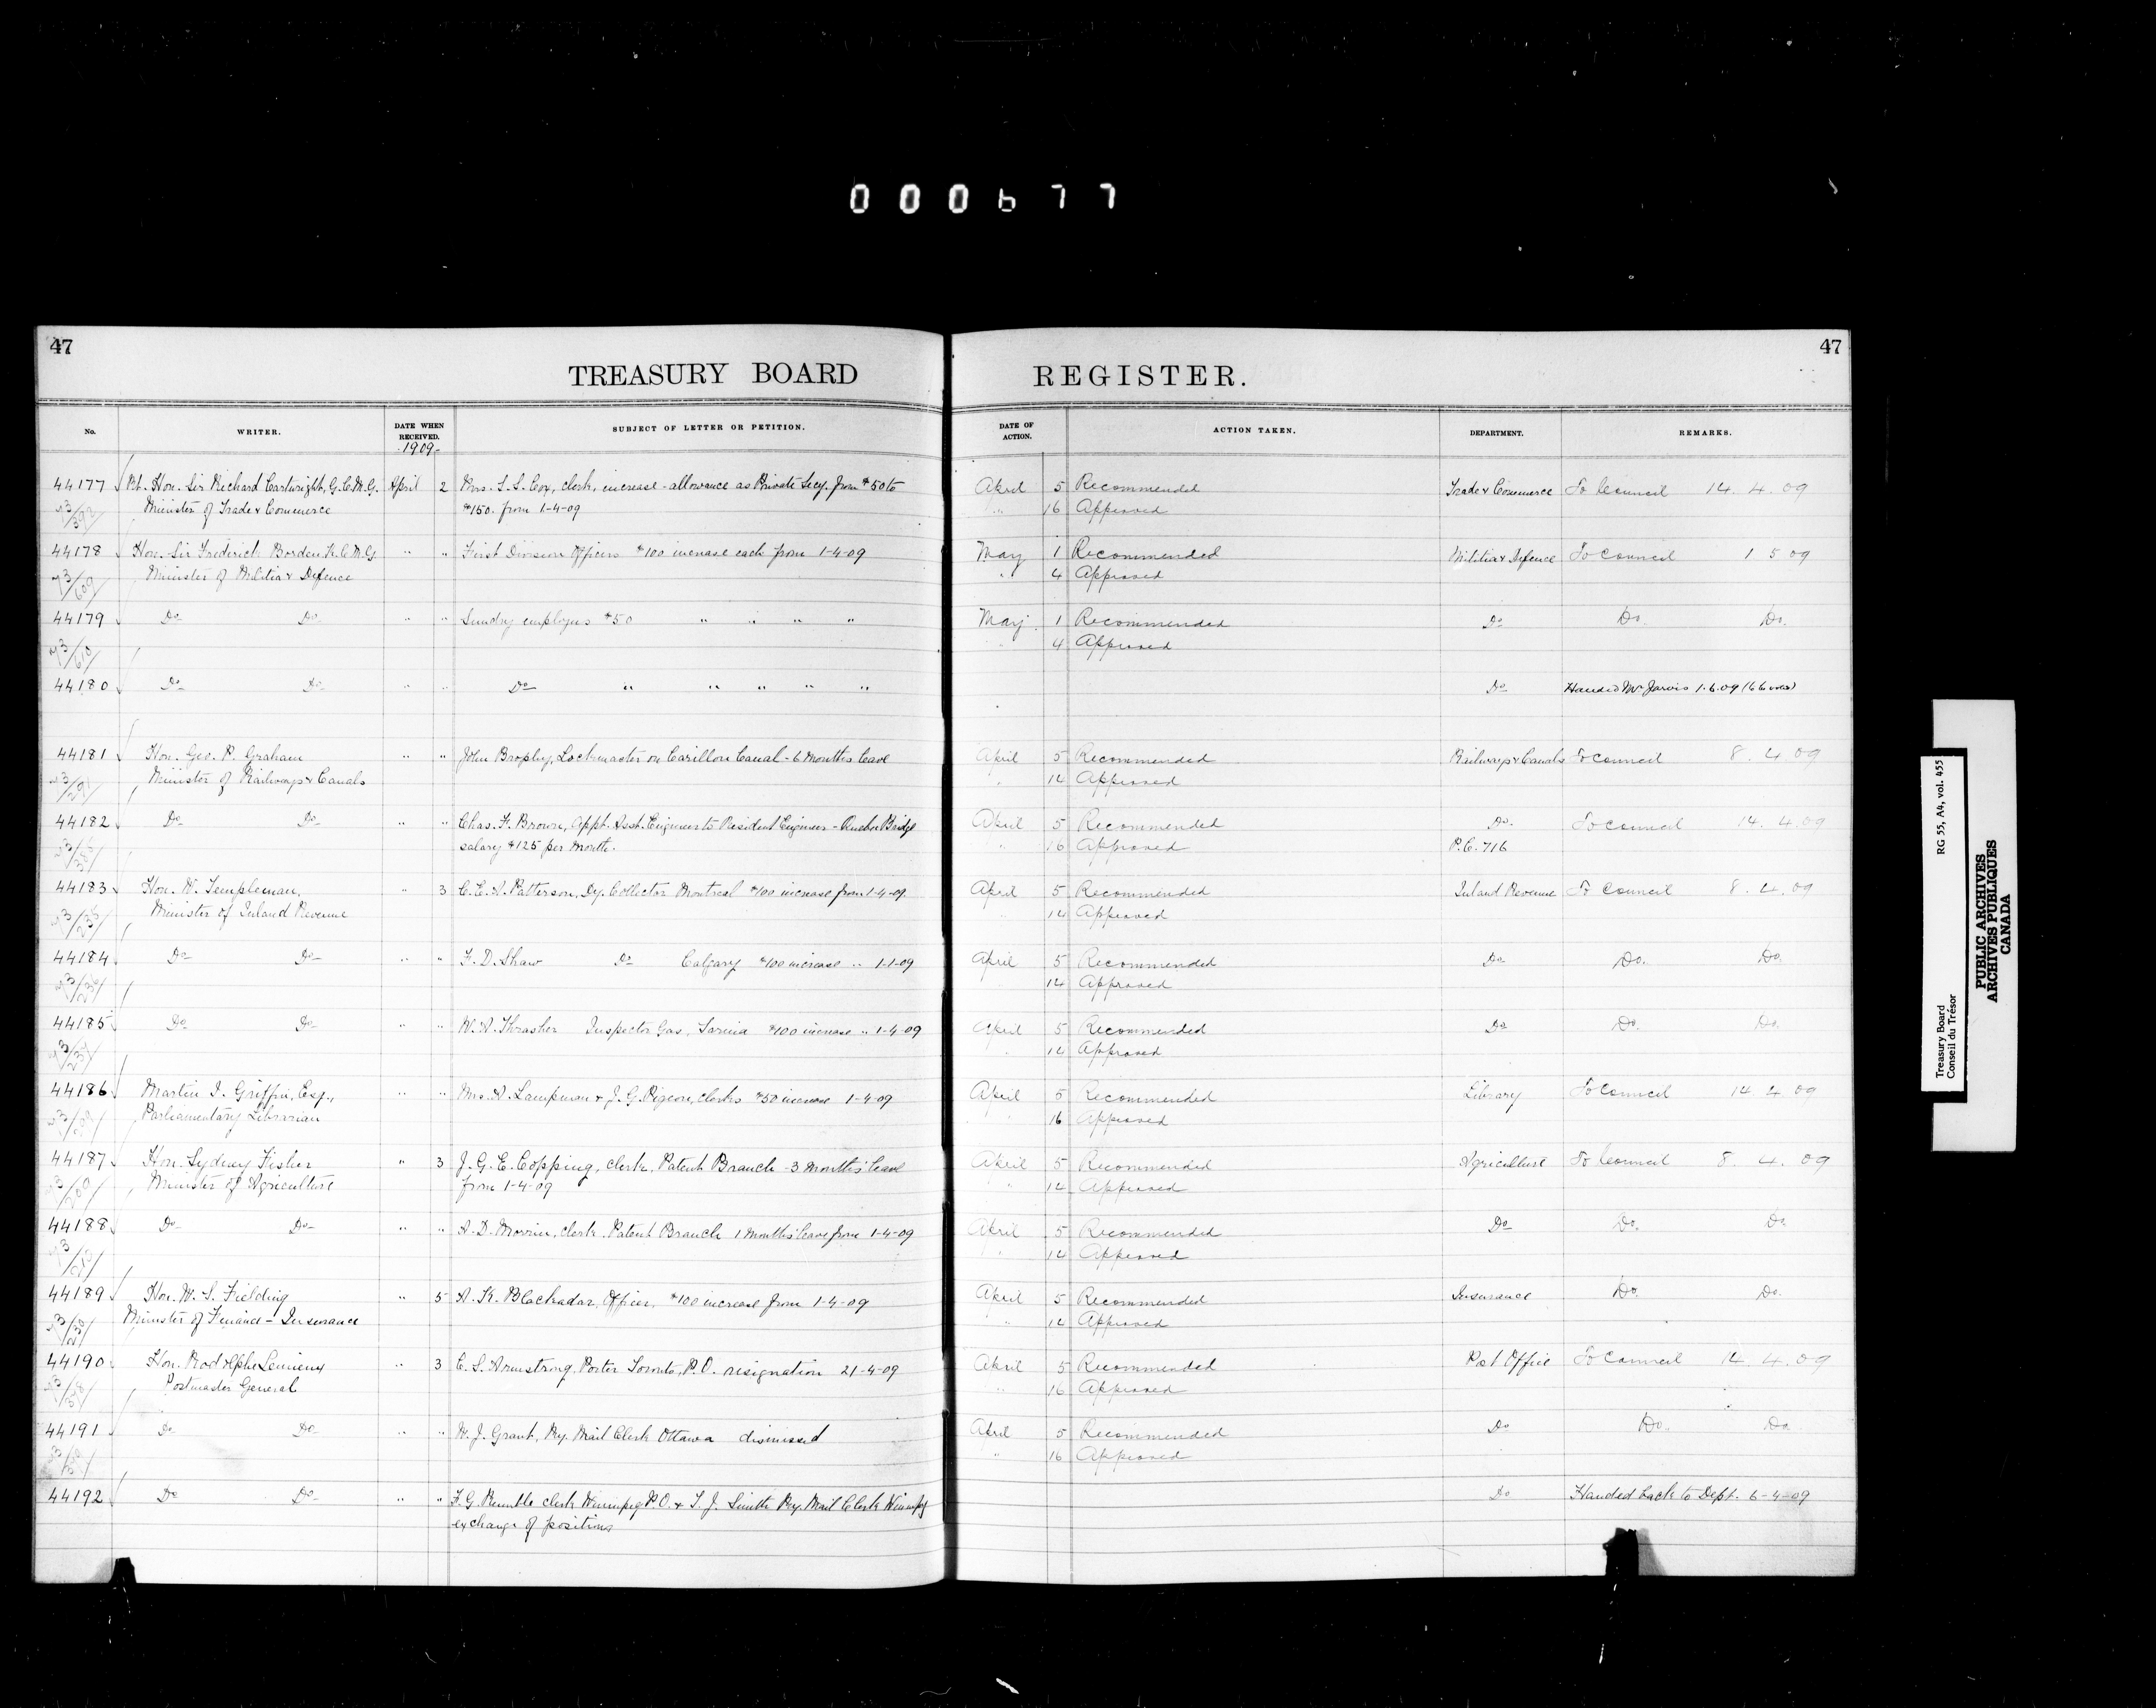 000677
47
47
TREASURY BOARD REGISTER.
No. WRITER. DATE WHEN RECEIVED. SUBJECT OF LETTER OR PETITION. DATE OF ACTION. ACTION TAKEN. DEPARTMENT. REMARKS.
1909-
44177 Rt. Hon. Sir Richard Cartwright, G.C.M.G. April 2 Mrs. L. L. Cox, clerk, increase - allowance as Private Secy. from $50 to April 5 Recommended Trade & Commerce To Council 14. 4. 09
Minister of Trade & Commerce $150. from 1-4-09 " 16 Approved
44178 Hon. Sir Frederick Borden K.C.M.G. " " First Division Officers $100 increase each from 1-4-09 May 1 Recommended Militia & Defence To Council 1 5 09
Minister of Militia & Defence " 4 Approved
44179 Do Do " " Sundry employees $50 " " " " May 1 Recommended Do Do. Do.
4 Approved
44180 Do Do " " Do " " " " " Do Handed Mr Jarvis 1.6.09
44181 Hon. Geo. P. Graham " " John Brophy, Lockmaster on Carillon Canal - 6 Months leave April 5 Recommended Railways & Canals To Council 8. 4 09
Minister of Railways & Canals " 14 Approved
44182 Do Do " " Chas. F. Brown, Appt. Asst. Engineer to Resident Engineer - Quebec Bridge April 5 Recommended Do. To Council 14. 4. 09
salary $125 per Month. " 16 Approved P.C. 716
44183 Hon. W. Templeman, " 3 C. E. A. Patterson, Dy. Collector Montreal $100 increase from 1-4-09. April 5 Recommended Inland Revenue To Council 8. 4. 09
Minister of Inland Revenue 14 Approved
44184 Do Do " " F. D. Shaw Do Calgary $100 increase " 1-1-09 April 5 Recommended Do Do. Do.
14 Approved
44185 Do Do " " W. A. Thrasher Inspector Gas, Sarnia $100 increase " 1-4-09 April 5 Recommended Do Do. Do.
14 Approved
44186 Martin J. Griffin, Esq., " " Mrs. A. Lampman & J. G. Pigeon, clerks $50 increase 1-4-09 April 5 Recommended Library To Council 14. 4 09
Parliamentary Librarian 16 Approved
44187 Hon. Sydney Fisher " 3 J. G. E. Copping, clerk, Patent Branch - 3 Months' leave April 5 Recommended Agriculture To Council 8. 4. 09
Minister of Agriculture from 1-4-09 " 14 Approved
44188 Do Do " " A. D. Morrin, clerk, Patent Branch 1 Months leave from 1-4-09 April 5 Recommended Do Do. Do.
14 Approved
44189 Hon. W. S. Fielding " 5 A. K. Blackadar, Officer, $100 increase from 1-4-09 April 5 Recommended Insurance Do. Do.
Minister of Finance - Insurance " 14 Approved
44190 Hon. Rodolphe Lemieux " 3 C. S. Armstrong. Porter Toronto, P.O. resignation 21-4-09 April 5 Recommended Post Office To Council 14. 4. 09
Postmaster General " 16 Approved
44191 Do Do " " W. J. Grant, Ry. Mail Clerk Ottawa dismissed April 5 Recommended Do Do. Do.
" 16 Approved
44192 Do Do " " F. G. Rumble clerk Winnipeg P.O. & T. J. Smith Ry. Mail Clerk Winnipeg Do Handed back to Dept. 6-4-09
exchange of positions
Treasury Board RG 55, A4, vol. 455
Conseil du Trésor
PUBLIC ARCHIVES
ARCHIVES PUBLIQUES
CANADA